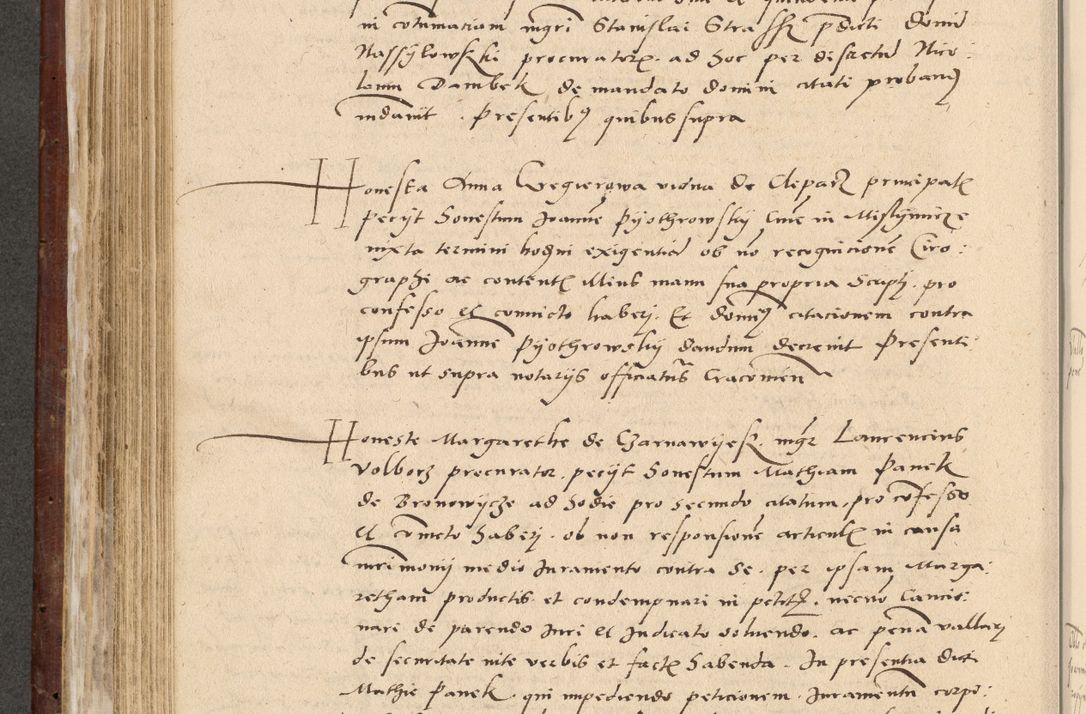 in cotumatiam mgri Stanislai Strassz pdicti domi
Nassylowsski procurators ad hoc per discretu Nico:
laum Dambek de mandato domini citati proband
indauit . Presentibs quibus supra
Honesta Anna Gregierowa vidua de Clepar principalr
pecyt honestum Joanne Pyothrowsky Cive in Myslymicze
iuxta termini hodni exigentia ob no recognicione Ciro:
graphi ac content Mius manu sua propria script . pro
confesso et convicto haberi . Et domi citacionem contra
ipsum Joanne Pyothrowsky dandum decrevit Presenti:
bus ut supra notarijs officiatus Cracovien
Honeste Margarethe de Czarnawyesz . mgr Laurencius
Volborz procurator . pecyt honestum Mathiam Panek
de Bronowycze ad hodie pro secundo citatum . pro cofesso
et convicto haberi . ob non responsione articulr in causa
mrimonij medio Juramento contra se . per ipsam Marga:
retham productis et condempnari in petitr . necno Cancio:
nare de parendo Juri et Judicato solvendo . ac pena vallari
de securitate vite verbis et factr habenda . In presentia dicti
Mathie Panek . qui impediendo peticionem . Juramentu corpo: